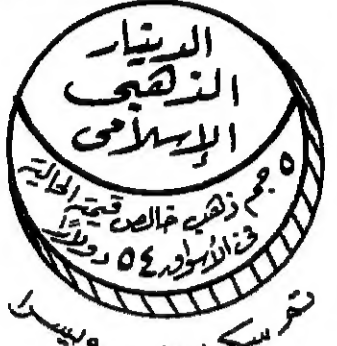 الدينار
الذهبي
الإسلامى
٥ جم ذهب خالص قيمته الحالية
فى الأسواق ٥٤ دولاراً